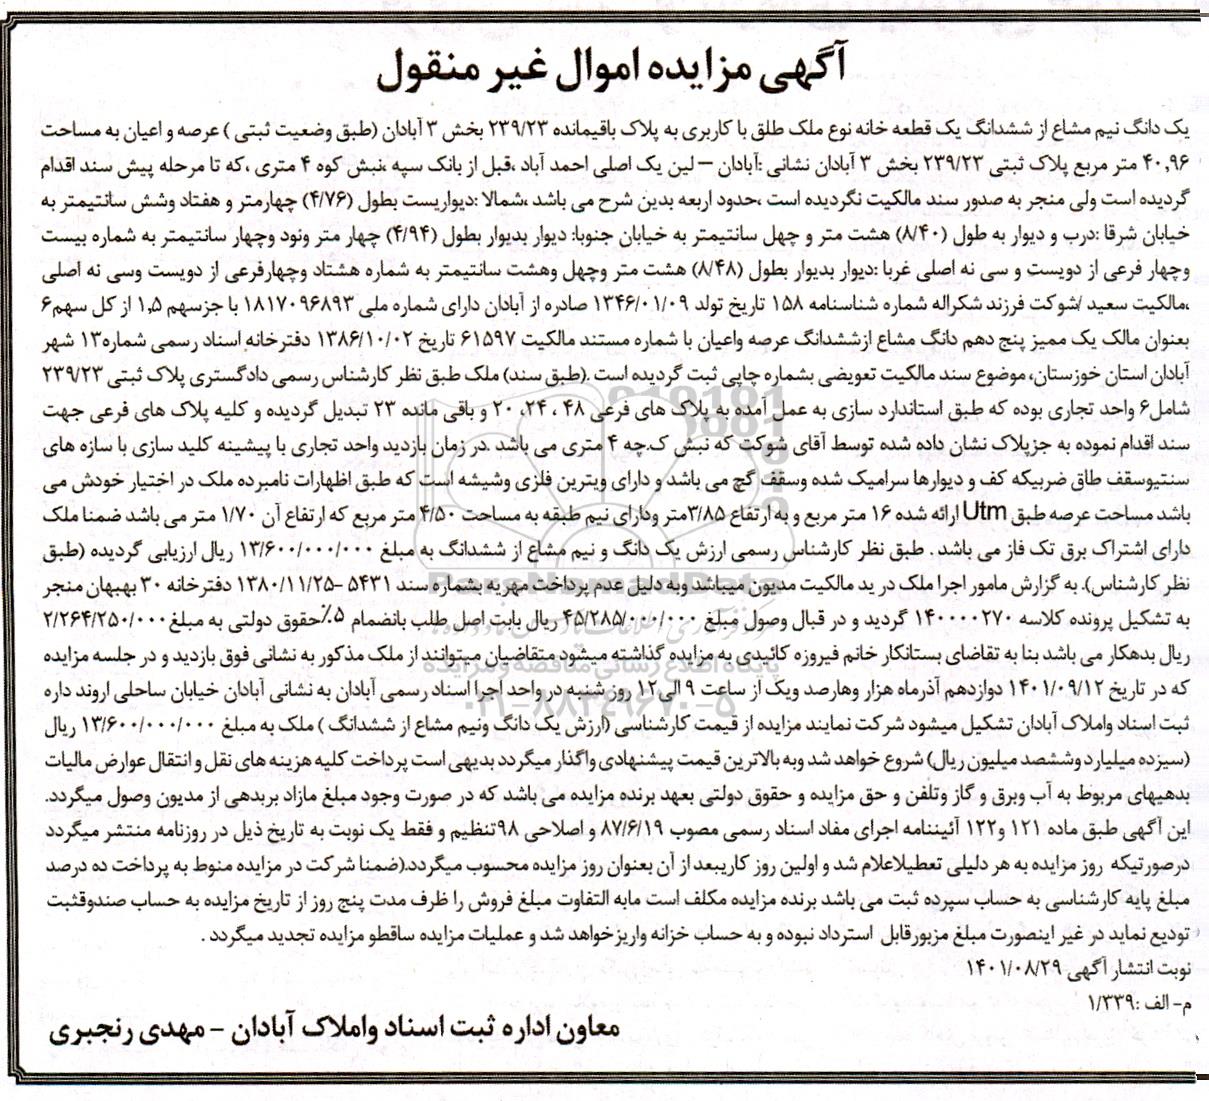 آگهی مزایده اموال غیر منقول
یک دانگ نیم مشاع از ششدانگ یک قطعه خانه نوع ملک طلق با کاربری به پلاک باقیمانده ۲۳۹/۲۳ بخش ۳ آبادان (طبق وضعیت ثبتی ) عرصه و اعیان به مساحت
۴۰,۹۶ متر مربع پلاک ثبتی ۲۳۹/۲۳ بخش ۳ آبادان نشانی :آبادان – لین یک اصلی احمد آباد ،قبل از بانک سپه ،نبش کوه ۴ متری ،که تا مرحله پیش سند اقدام
گردیده است ولی منجر به صدور سند مالکیت نگردیده است ،حدود اربعه بدین شرح می باشد ،شمالا :دیواریست بطول (۴/۷۶) چهارمتر و هفتاد وشش سانتیمتر به
خیابان شرقا :درب و دیوار به طول (۸/۴۰) هشت متر و چهل سانتیمتر به خیابان جنوبا: دیوار بدیوار بطول (۴/۹۴) چهار متر ونود وچهار سانتیمتر به شماره بیست
وچهار فرعی از دویست و سی نه اصلی غربا :دیوار بدیوار بطول (۸/۴۸) هشت متر وچهل وهشت سانتیمتر به شماره هشتاد وچهارفرعی از دویست وسی نه اصلی
،مالکیت سعید /شوکت فرزند شکراله شماره شناسنامه ۱۵۸ تاریخ تولد ۱۳۴۶/۰۱/۰۹ صادره از آبادان دارای شماره ملی ۱۸۱۷۰۹۶۸۹۳ با جزسهم ۱,۵ از کل سهم۶
بعنوان مالک یک ممیز پنج دهم دانگ مشاع ازششدانگ عرصه واعیان با شماره مستند مالکیت ۶۱۵۹۷ تاریخ ۱۳۸۶/۱۰/۰۲ دفترخانه اسناد رسمی شماره۱۳ شهر
آبادان استان خوزستان، موضوع سند مالکیت تعویضی بشماره چاپی ثبت گردیده است .(طبق سند) ملک طبق نظر کارشناس رسمی دادگستری پلاک ثبتی ۲۳۹/۲۳
شامل۶ واحد تجاری بوده که طبق استاندارد سازی به عمل آمده به پلاک های فرعی ۴۸ ، ۲۴، ۲۰ و باقی مانده ۲۳ تبدیل گردیده و کلیه پلاک های فرعی جهت
سند اقدام نموده به جزپلاک نشان داده شده توسط آقای شوکت که نبش ک.چه ۴ متری می باشد .در زمان بازدید واحد تجاری با پیشینه کلید سازی با سازه های
سنتیوسقف طاق ضربیکه کف و دیوارها سرامیک شده وسقف گچ می باشد و دارای ویترین فلزی وشیشه است که طبق اظهارات نامبرده ملک در اختیار خودش می
باشد مساحت عرصه طبق Utm ارائه شده ۱۶ متر مربع و به ارتفاع ۳/۸۵متر ودارای نیم طبقه به مساحت ۴/۵۰ متر مربع که ارتفاع آن ۱/۷۰ متر می باشد ضمنا ملک
دارای اشتراک برق تک فاز می باشد . طبق نظر کارشناس رسمی ارزش یک دانگ و نیم مشاع از ششدانگ به مبلغ ۱۳/۶۰۰/۰۰۰/۰۰۰ ریال ارزیابی گردیده (طبق
نظر کارشناس). به گزارش مامور اجرا ملک در ید مالکیت مدیون میباشد .وبه دلیل عدم پرداخت مهریه بشماره سند ۵۴۳۱ –۱۳۸۰/۱۱/۲۵ دفترخانه ۳۰ بهبهان منجر
به تشکیل پرونده کلاسه ۱۴۰۰۰۰۲۷۰ گردید و در قبال وصول مبلغ ۴۵/۲۸۵/۰۰۰/۰۰۰ ریال بابت اصل طلب بانضمام ۵٪حقوق دولتی به مبلغ۲/۲۶۴/۲۵۰/۰۰۰
ریال بدهکار می باشد بنا به تقاضای بستانکار خانم فیروزه کائیدی به مزایده گذاشته میشود متقاضیان میتوانند از ملک مذکور به نشانی فوق بازدید و در جلسه مزایده
که در تاریخ ۱۴۰۱/۰۹/۱۲ دوازدهم آذرماه هزار وهارصد ویک از ساعت ۹ الی۱۲ روز شنبه در واحد اجرا اسناد رسمی آبادان به نشانی آبادان خیابان ساحلی اروند داره
ثبت اسناد واملاک آبادان تشکیل میشود شرکت نمایند مزایده از قیمت کارشناسی (ارزش یک دانگ ونیم مشاع از ششدانگ ) ملک به مبلغ ۱۳/۶۰۰/۰۰۰/۰۰۰ ریال
(سیزده میلیارد وششصد میلیون ریال) شروع خواهد شد وبه بالاترین قیمت پیشنهادی واگذار میگردد بدیهی است پرداخت کلیه هزینه های نقل و انتقال عوارض مالیات
بدهیهای مربوط به آب وبرق و گاز وتلفن و حق مزایده و حقوق دولتی بعهد برنده مزایده می باشد که در صورت وجود مبلغ مازاد بربدهی از مدیون وصول میگردد.
این آگهی طبق ماده ۱۲۱ و۱۲۲ آئیننامه اجرای مفاد اسناد رسمی مصوب ۸۷/۶/۱۹ و اصلاحی ۹۸تنظیم و فقط یک نوبت به تاریخ ذیل در روزنامه منتشر میگردد
درصورتیکه روز مزایده به هر دلیلی تعطیلاعلام شد و اولین روز کاریبعد از آن بعنوان روز مزایده محسوب میگردد.(ضمنا شرکت در مزایده منوط به پرداخت ده درصد
مبلغ پایه کارشناسی به حساب سپرده ثبت می باشد برنده مزایده مکلف است مابه التفاوت مبلغ فروش را ظرف مدت پنج روز از تاریخ مزایده به حساب صندوقثبت
تودیع نماید در غیر اینصورت مبلغ مزبورقابل استرداد نبوده و به حساب خزانه واریزخواهد شد و عملیات مزایده ساقطو مزایده تجدید میگردد .
نوبت انتشار آگهی ۱۴۰۱/۰۸/۲۹
م- الف :۱/۳۳۹
معاون اداره ثبت اسناد واملاک آبادان - مهدی رنجبری
ParsNamadData
پایگاه اطلاع رسانی مناقصه و مزایده
۰۲۱-۸۸۳۴۹۶۷۰-۵